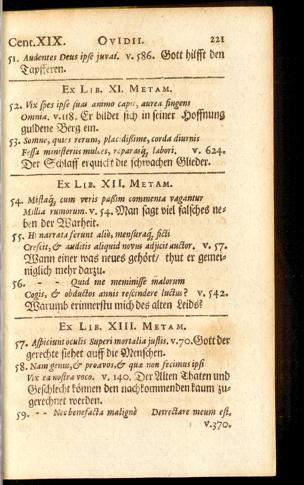 Cent. XIX. OVIDII. 221
51. Audentes Deus ipse juvat. v. 586. Gott hilfft den
Tapfferen.
EX LIB. XI. METAM.
52. Vix spes ipse suas animo capit, aurea fingens
Omnia. v. 118. Er bildet sich in seiner Hoffnung
guldene Berg ein.
53. Somne, quies rerum, placidissime, corda diurnis
Fessa ministeriis mulces, reparasq́, labori. v. 624.
Der Schlaff erquickt die schwachen Glieder.
EX LIB. XII. METAM.
54. Mistaq́, cum veris passim commenta vagantur
Millia rumorum. v. 54. Man sagt viel falsches ne-
ben der Warheit.
55. Hi narrata ferunt aliò, mensuraq́, ficti
Crescit, & auditis aliquid novus adjicit auctor. v. 57.
Wann einer was neues gehört/ thut er gemei-
niglich mehr darzu.
56. - - Quid me meminisse malorum
Cogis, & obductos annis rescindere luctus? v. 542.
Warumb erinnerstu mich des alten Leids?
EX LIB. XIII. METAM.
57. Aspiciunt oculis Superi mortalia justis. v. 70. Gott der
gerechte siehet auff die Menschen.
58. Nam genus, & proavos, & quæ non fecimus ipsi
Vix ea nostra voco. v. 140. Der Alten Thaten und
Geschlecht können den nachkommenden kaum zu-
gerechnet werden.
59. - - Nec benefacta malignè Detrectare meum est.
v. 370.